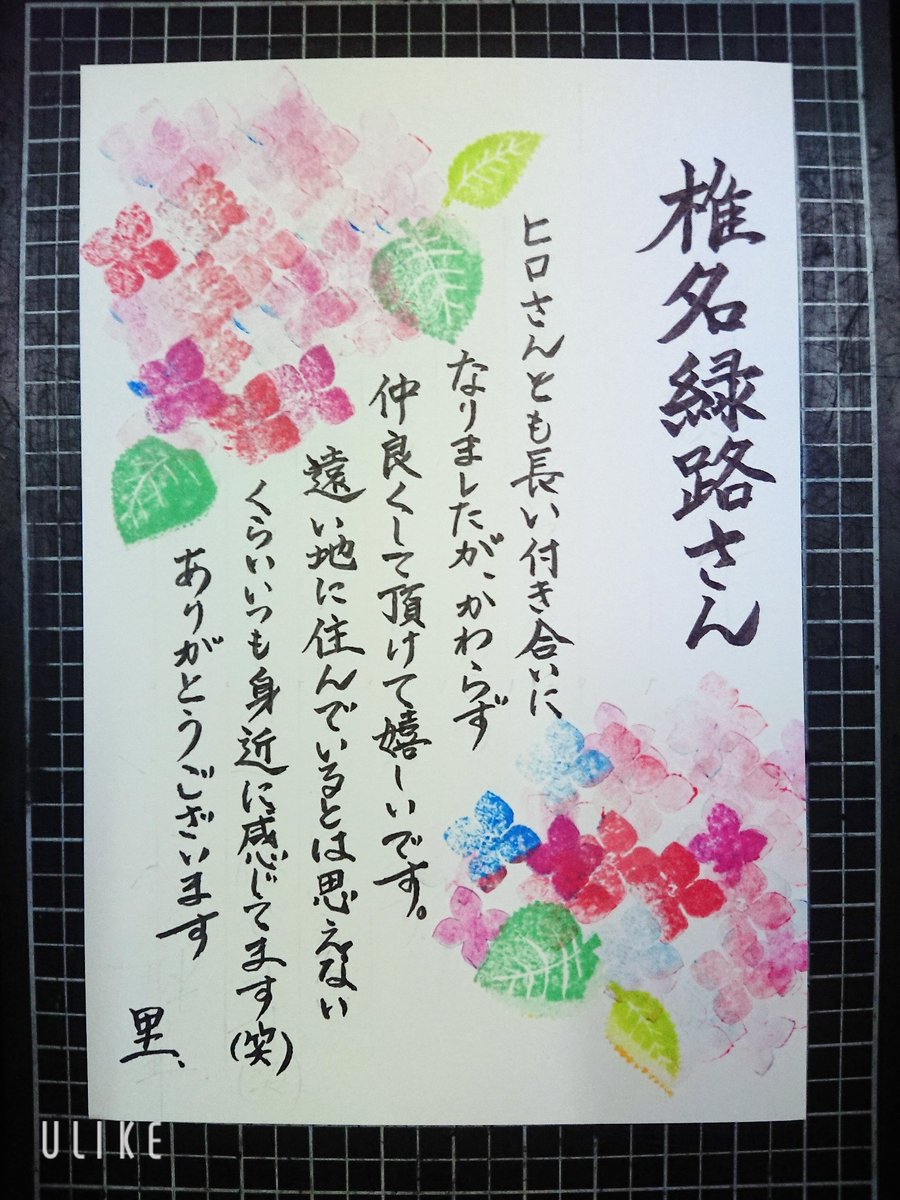 椎名緑路さん
ヒロさんとも長い付き合いに、
なりましたが、かわらず
仲良くして頂けて嬉しいです。
遠い地に住んでいるとは思えない
くらいいつも身近に感じてます(笑)
ありがとうございます
里、
ULIKE